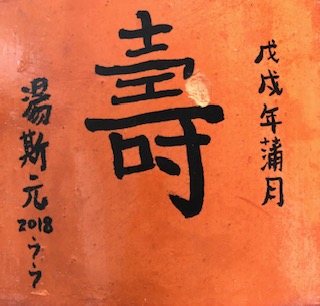 戊戌年蒲月
壽
湯斯元2018